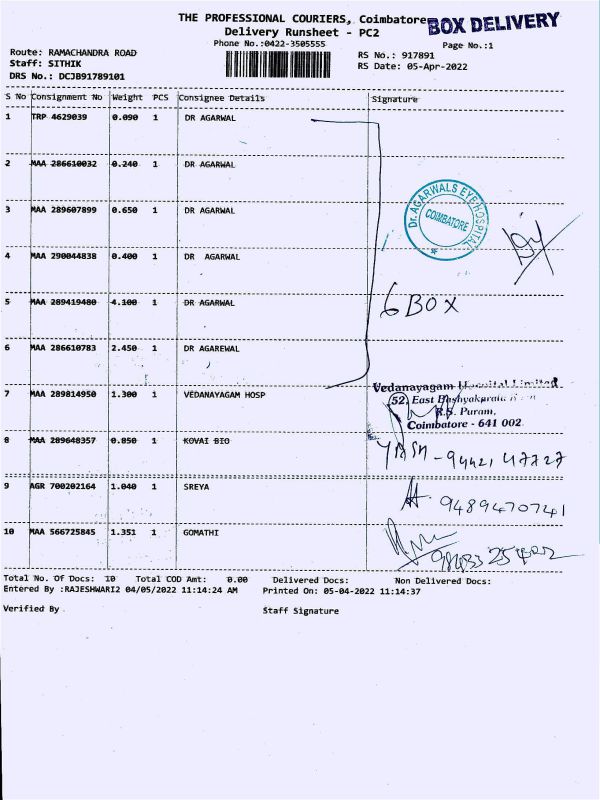 THE PROFESSIONAL COURIERS, Coimbatore
BOX DELIVERY
Delivery Runsheet - PC2
Phone No.:0422-3505555
Page No.:1
Route: RAMACHANDRA ROAD
RS No.: 917891
Staff: SITHIK
RS Date: 05-Apr-2022
DRS No.: DCJB91789101
S No Consignment No Weight PCS Consignee Details Signature
1 TRP 4629039 0.090 1 DR AGARWAL
2 MAA 286610032 0.240 1 DR AGARWAL
3 MAA 289607899 0.650 1 DR AGARWAL
Dr. AGARWALS EYE HOSPITAL
COIMBATORE
4 MAA 290044838 0.400 1 DR AGARWAL
5 MAA 289419480 4.100 1 DR AGARWAL
6 BOX
6 MAA 286610783 2.450 1 DR AGAREWAL
7 MAA 289814950 1.300 1 VEDANAYAGAM HOSP
Vedanayagam Hospital Limited
52, East Bashyakaralu
R.S. Puram,
Coimbatore - 641 002
8 MAA 289648357 0.850 1 KOVAI BIO
9 AGR 700202164 1.040 1 SREYA
9489470741
10 MAA 566725845 1.351 1 GOMATHI
Total No. Of Docs: 10 Total COD Amt: 0.00 Delivered Docs: Non Delivered Docs:
Entered By :RAJESHWARI2 04/05/2022 11:14:24 AM Printed On: 05-04-2022 11:14:37
Verified By
Staff Signature